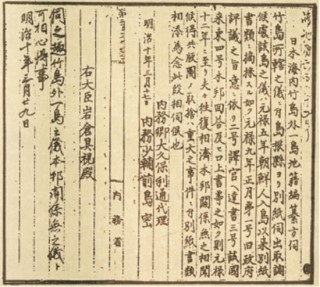 日本海内竹島外一島地籍編纂方伺
竹島所轄之儀ニ付島根縣ヨリ別紙伺出取調
候處該島之儀ハ元禄五年朝鮮人入島以来別紙
書類ニ摘採スル如ク元禄九年正月第一号旧政府
評議之旨意ニ依リ二号譯官ヘ達書三号該國
来柬四号本邦回答及ヒ口上書等之如ク則元禄
十二年ニ至リ夫々往復相濟本邦関係無之相聞
候得共版圖ノ取捨ハ重大之事件ニ付別紙書類
相添為念此段相伺候也
内務卿大久保利通代理
明治十年三月十七日 内務少輔前島密
右大臣岩倉具視殿
内務省
伺之趣竹島外一島之儀本邦関係無之儀ト
可相心得事
明治十年三月廿九日